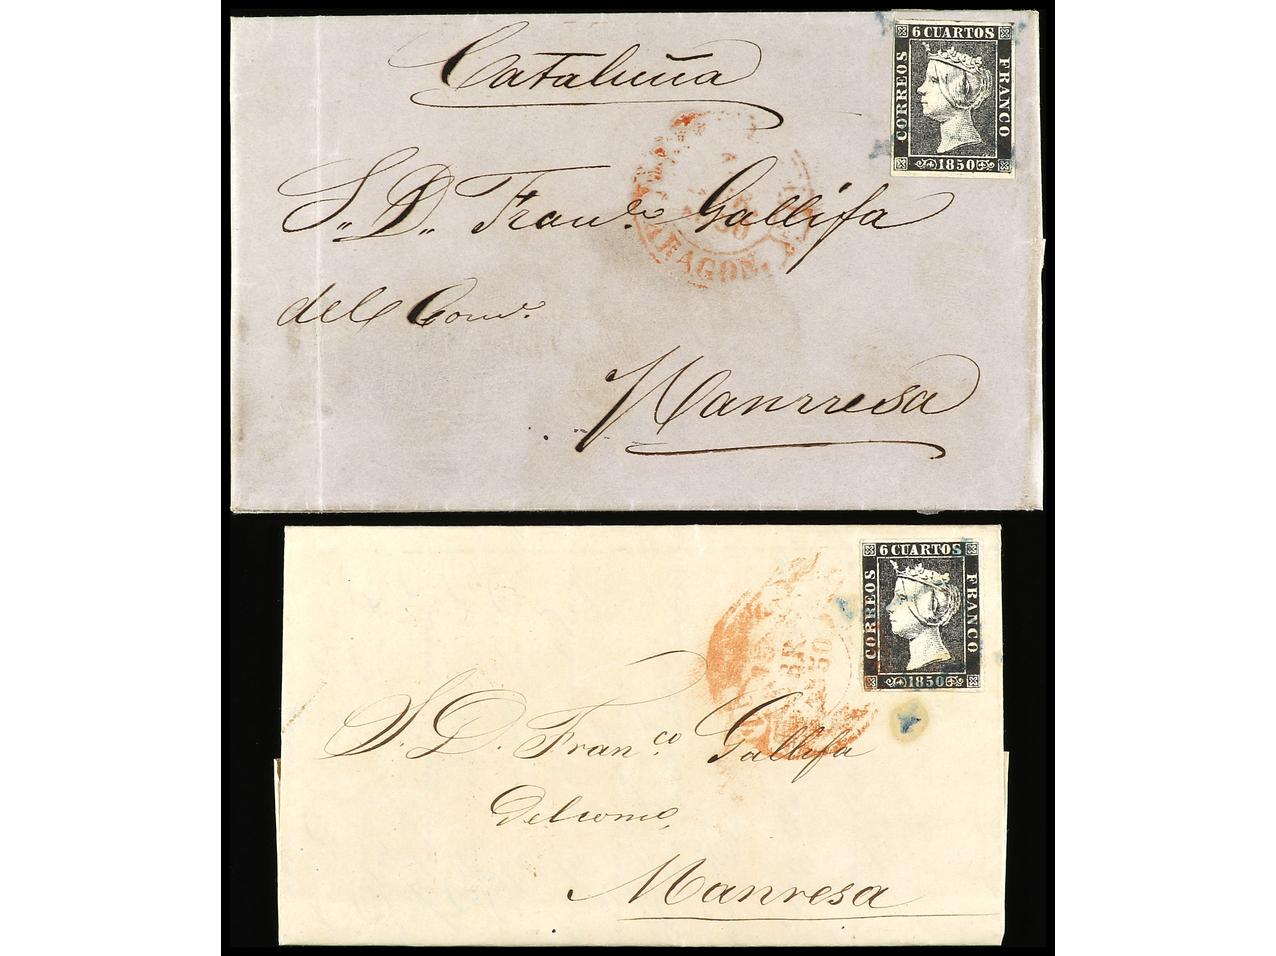 Cataluña
6 CUARTOS
CORREOS
FRANCO
1850
S. D. Fran.co Gallifa
ARAGON.
del Com.o
Manrresa
6 CUARTOS
CORREOS
FRANCO
1850
S. D. Fran.co Gallifa
Delcomo,
Manresa